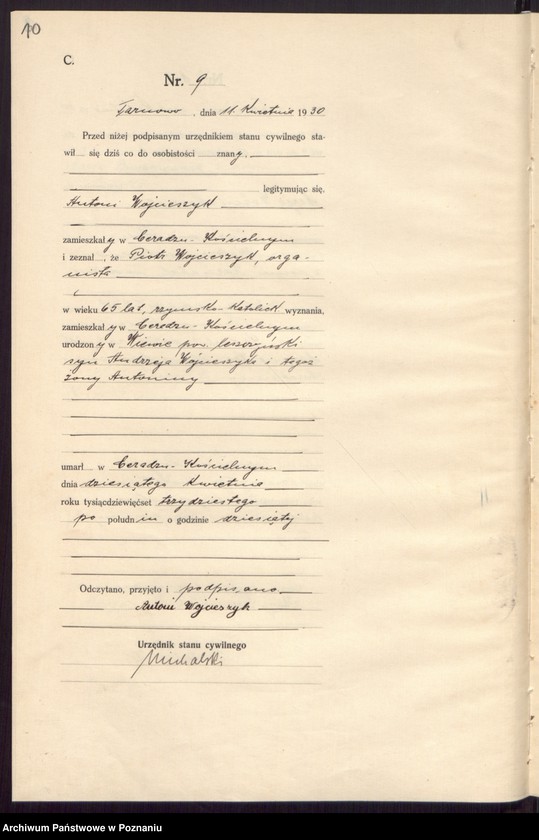 10
C.
Nr. 9
Tarnowo, dnia 11 Kwietnia 1930
Przed niżej podpisanym urzędnikiem stanu cywilnego sta-
wił się dziś co do osobistości znany.
legitymując się.
Antoni Wojcieszyk
zamieszkały w Ceradzu-Kościelnym
i zeznał, że Piotr Wojcieszyk, orga-
nista
w wieku 65 lat, rzymsko-katolick wyznania,
zamieszkały w Ceradzu-Kościelnym
urodzony w Wiewie pow. leszczyński
syn Andrzeja Wojcieszyka i tegoż
żony Antoniny
umarł w Ceradzu-Kościelnym
dnia dziesiątego Kwietnia
roku tysiącdziewięćset trzydziestego
po południu o godzinie dziesiątej
Odczytano, przyjęto i podpisano
Antoni Wojcieszyk
Urzędnik stanu cywilnego
Michalski
Archiwum Państwowe w Poznaniu